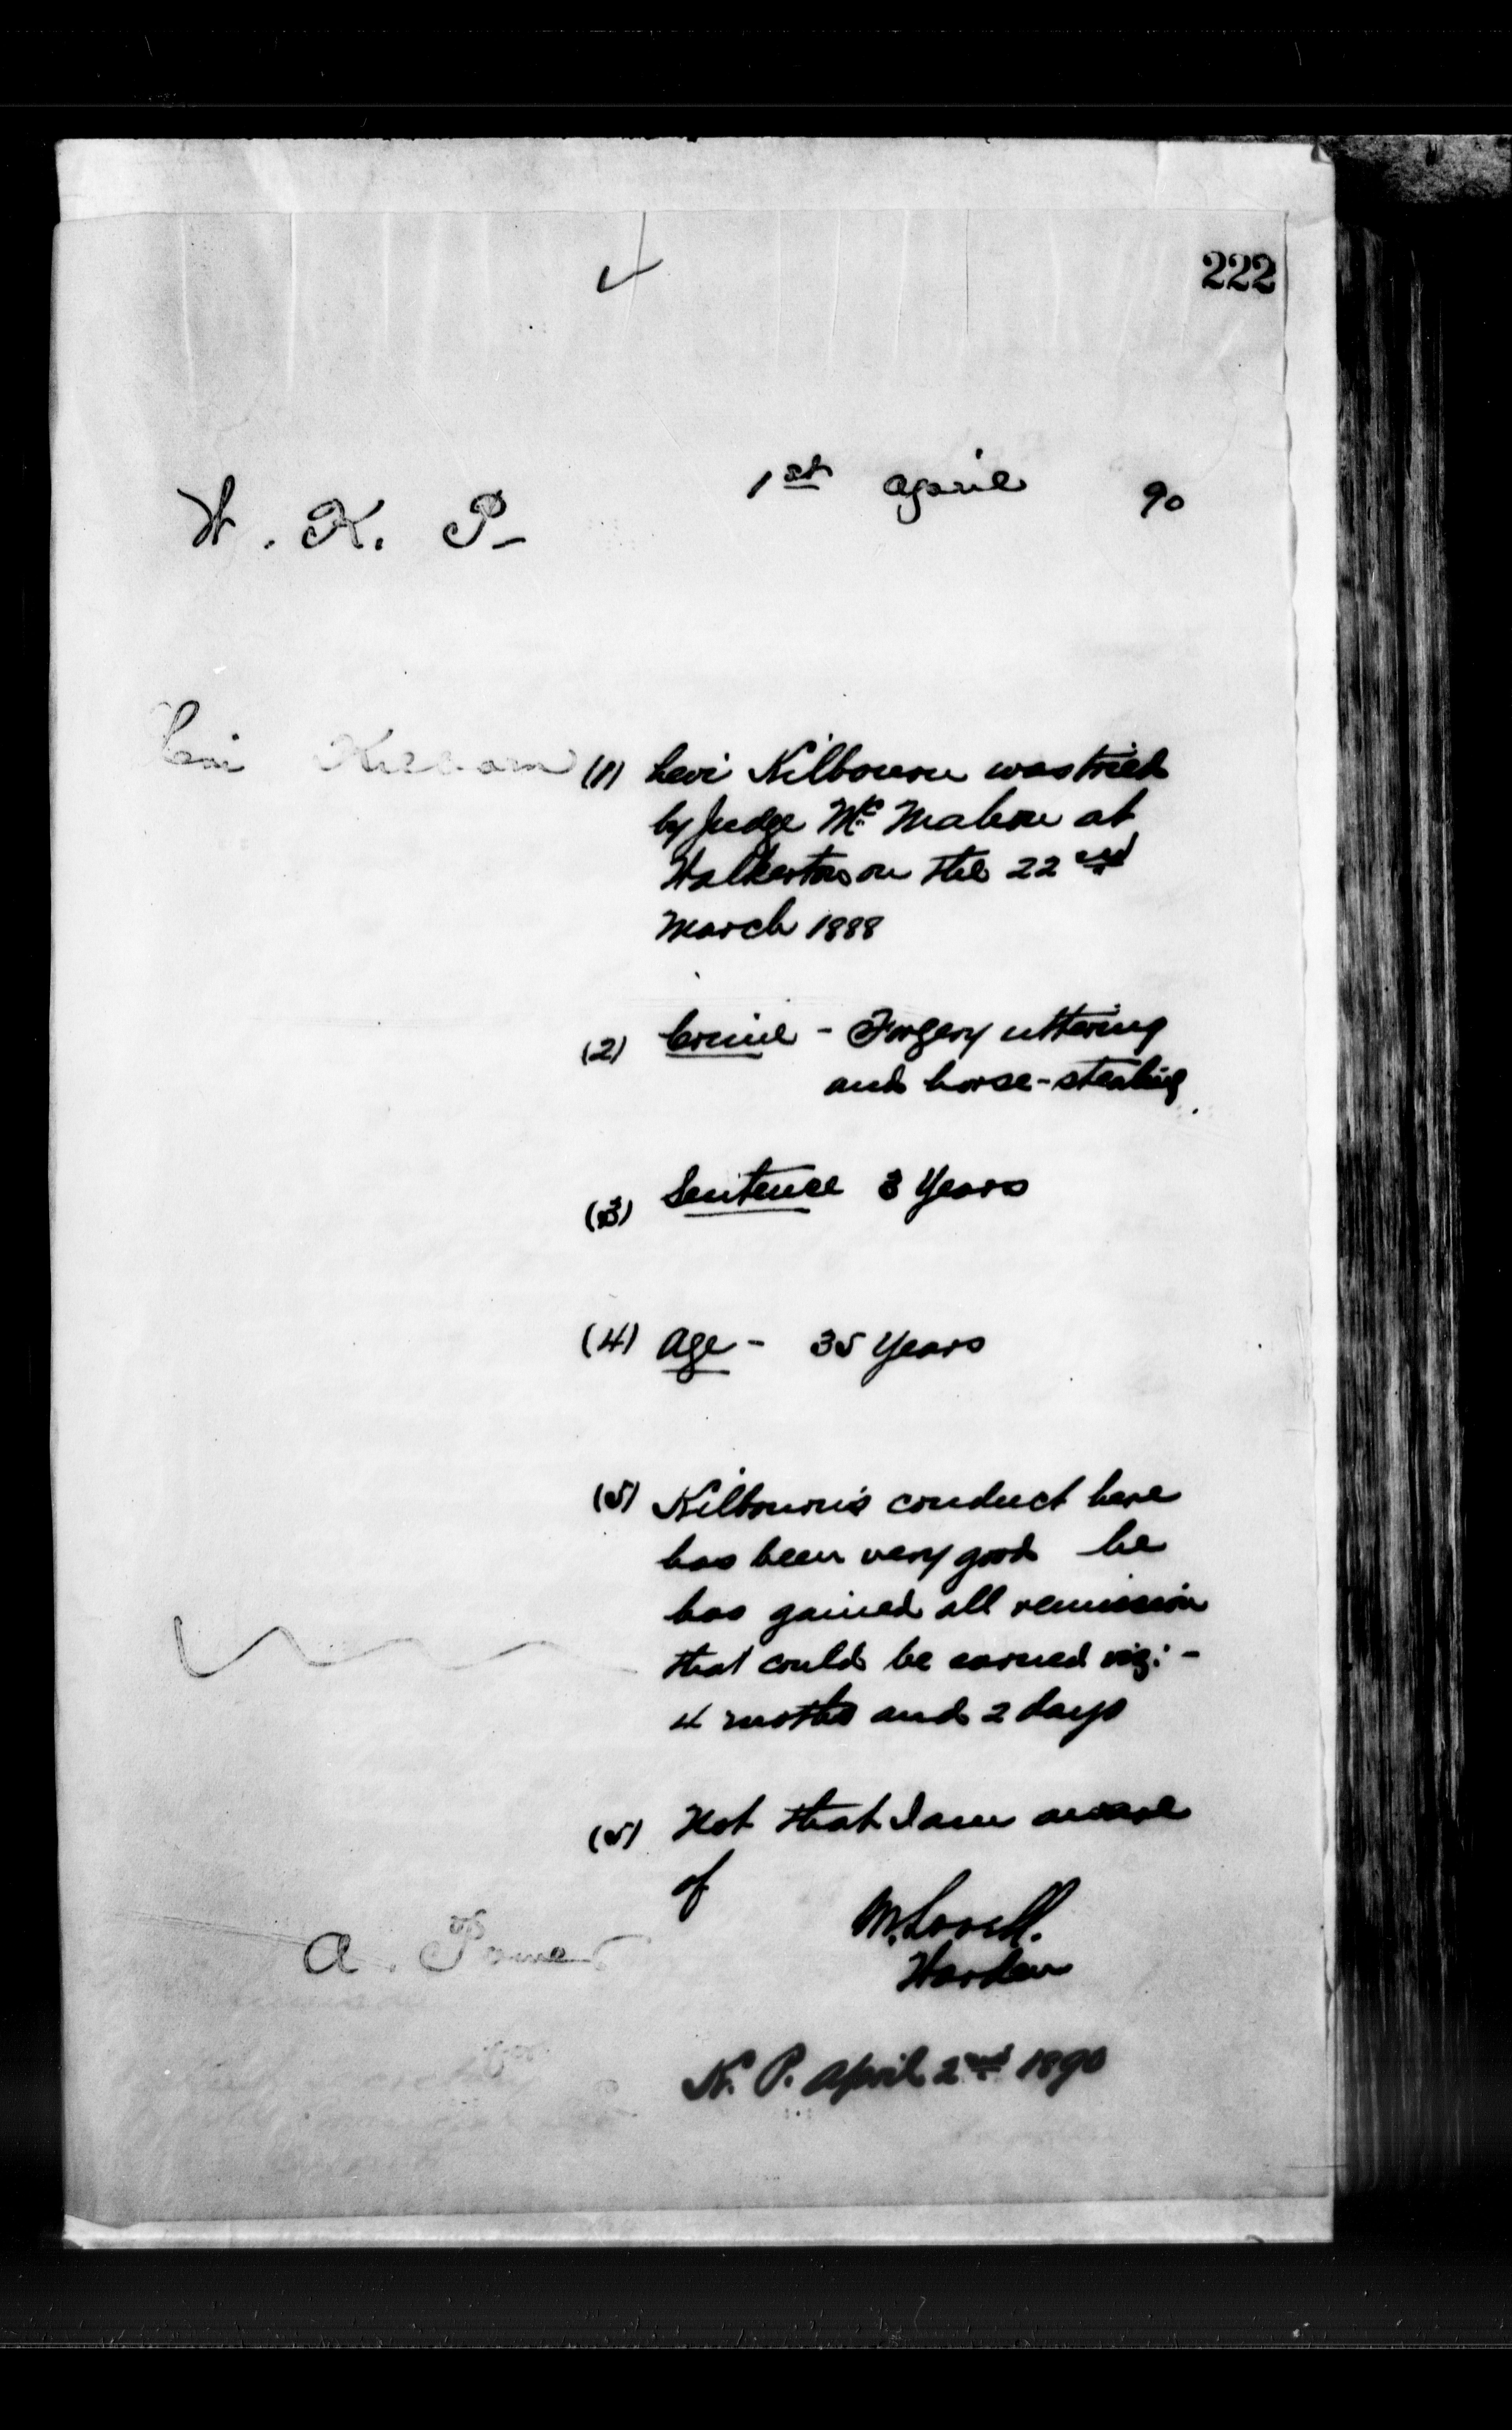 222
1st April 90
W. K. P-
Levi Kilbourn
(1) Levi Kilbourn was tried
by Judge Mc Mahon at
Walkerton on the 22nd
March 1888
(2) Crime - Forgery uttering
and horse-stealing
(3) Sentence 3 Years
(4) Age - 35 Years
(5) Kilbourn's conduct here
has been very good he
has gained all remission
that could be earned viz: -
4 moths and 2 days
(5) Not that I am aware
of
M. Lavell.
Warden
A. Power
K. P. April 2nd 1890